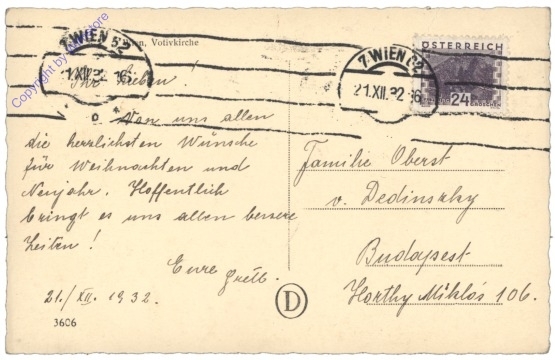 Copyright by
Wien, Votivkirche
7 WIEN 52
21.XII.32 16
7 WIEN 62
21.XII.32 16
ÖSTERREICH
24
GROSCHEN
Ihr Lieben!
Von uns allen
die herrlichsten Wünsche
für Weihnachten und
Neujahr. Hoffentlich
bringt es uns allen bessere
Zeiten!
Eure
Gretl.
21./XII. 1932.
3606
D
Familie Oberst
v. Dedinszky
Budapest
Horthy Miklós 106.